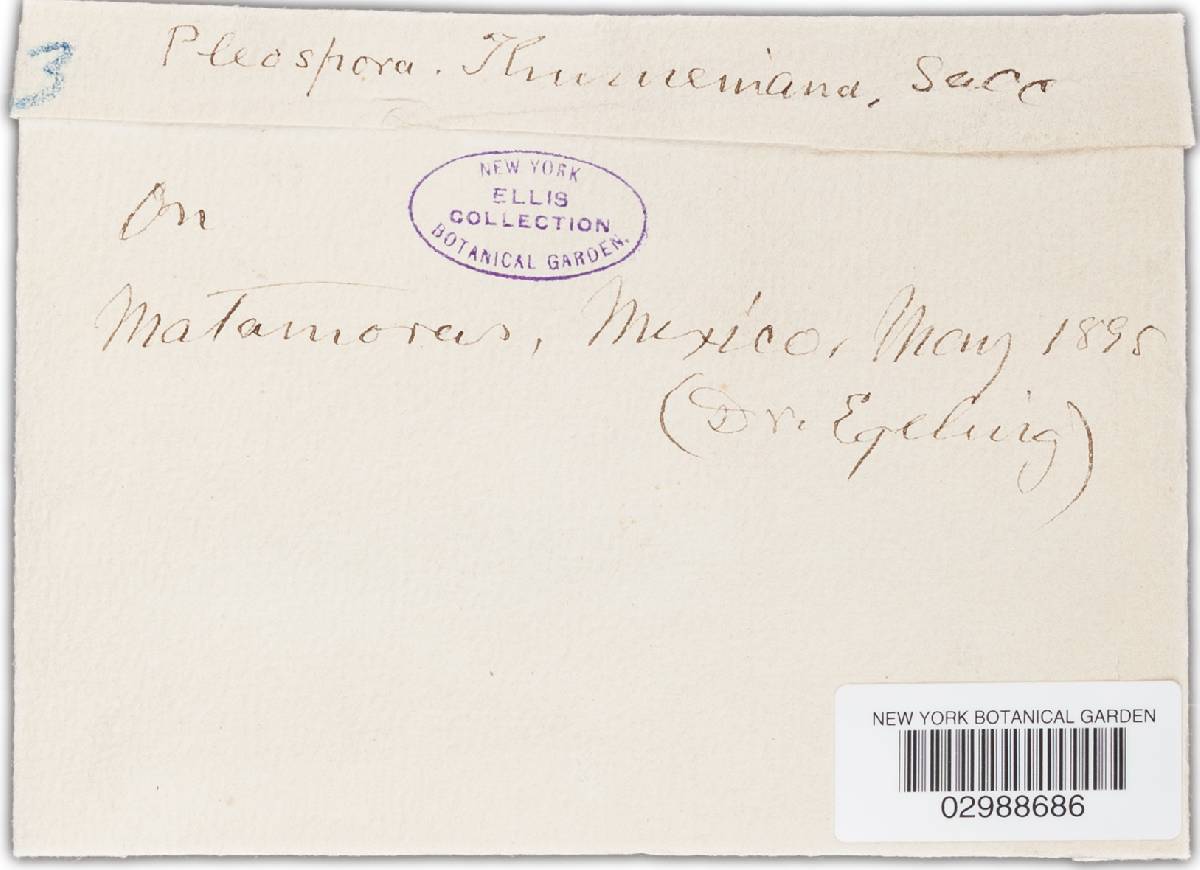 3
Pleospora. Thumeniana, Sacc
NEW YORK
ELLIS
COLLECTION
BOTANICAL GARDEN.
On
Matamoras, Mexico, May 1895
(Dr. Egeling)
NEW YORK BOTANICAL GARDEN
02988686